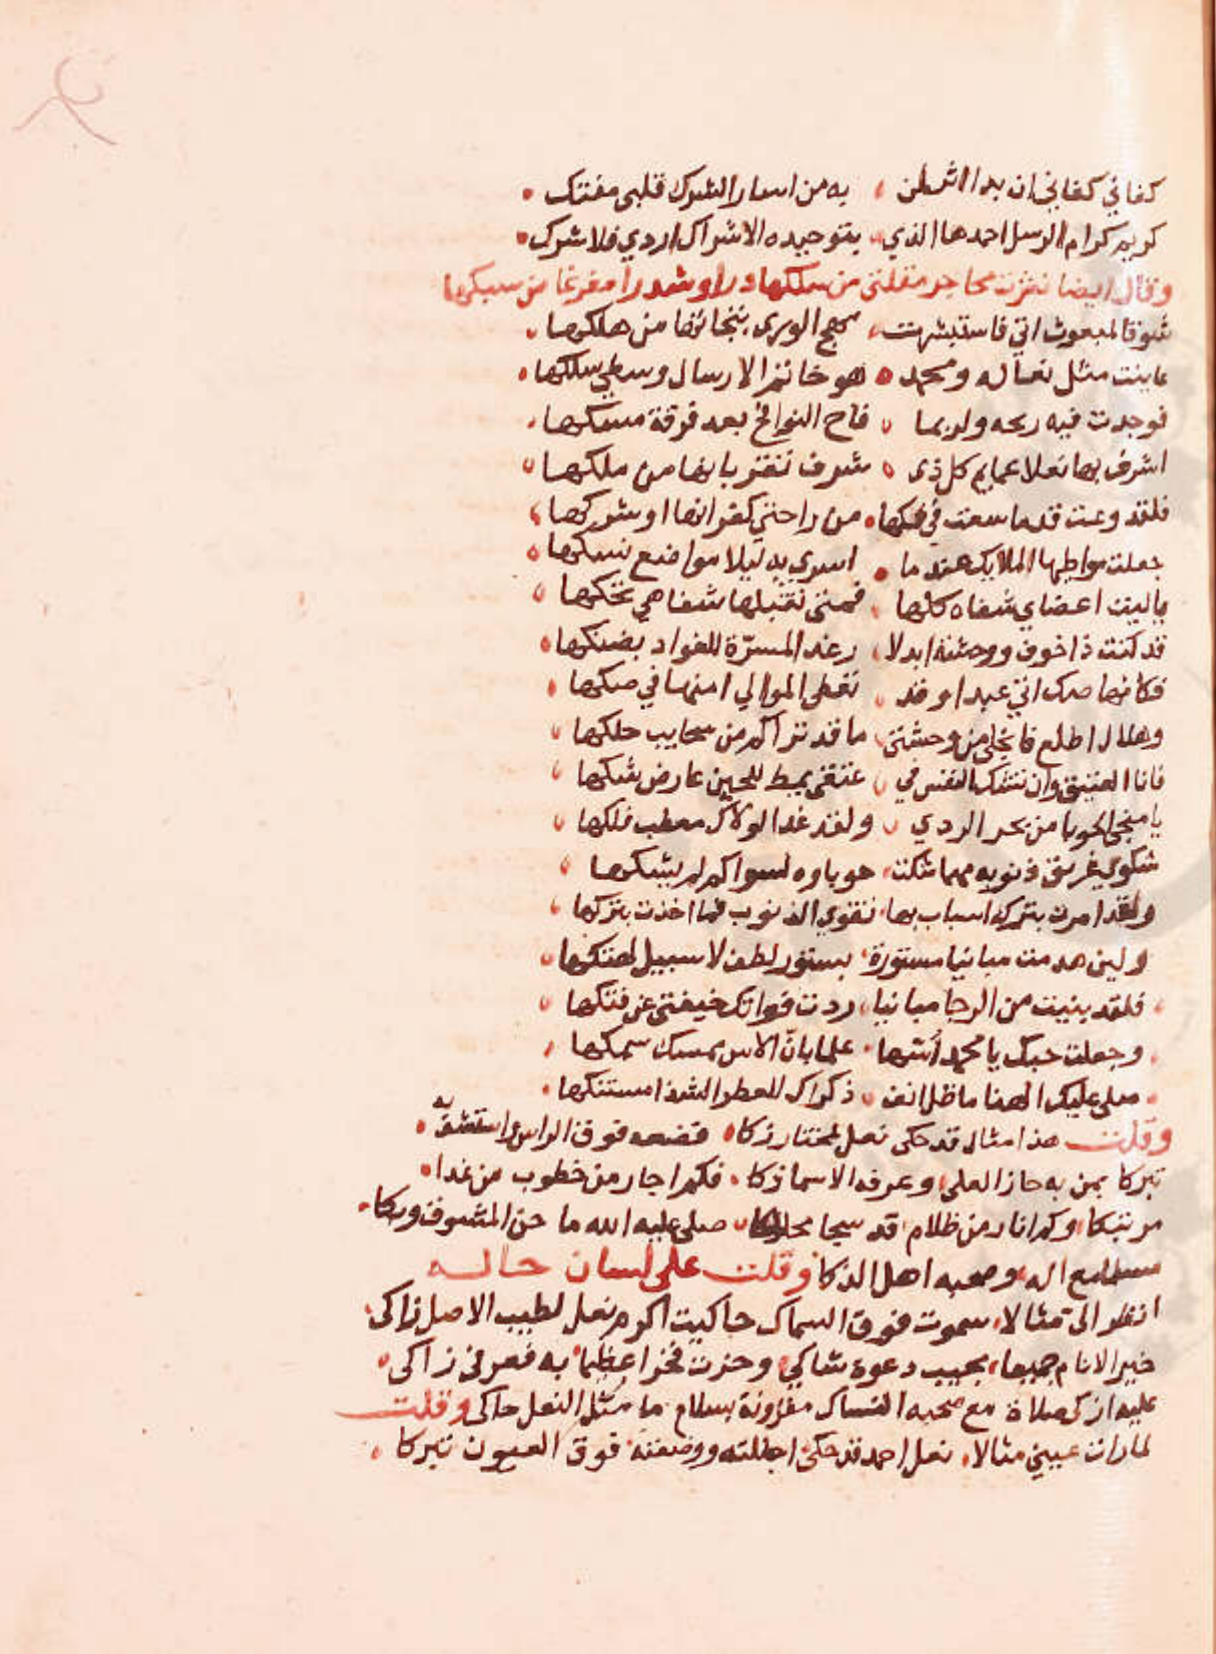 كفاني كفاني ان بدا به من اسار الشرك قلبي مفتك
كريم كرام الرسل احمدها الذي بتوحيده الاشراك اردي فلا شرك
وقال ايضا نثرت محاجر مقلتي من سلكها درا وشدرا مفرغا من سبكها
شوقا لمبعوث اتي فاستبشرت مهج الوري بنجاتها من هلكها
عاينت مثل نعاله ومحمد هو خاتم الارسال وسطي سلكها
فوجدت فيه ريحه ولربما فاح النوافح بعد فرقة مسكها
اشرف بها نعلا عمايم كل ذي شرف تقر بانها من ملكها
فلقد وعت قدما سعت في فكها من راحتي كفرانها او شركها
جعلت مواطيها الملايك عندما اسري به ليلا مواضع نسكها
ياليت اعضاي شفاه كلها فمني تقبلها شفاهي تحكها
قد كنت ذا خوف ووحشة ابدلا رغد المسرة للفواد بضنكها
فكانها صك اني عبد وقد تعطي الموالي امنها في صكها
وهلال اطلع فانجلي من وحشتي ما قد تراكم من سحايب حلكها
فانا العتيق وان تشك النفس في عتقي يمط للحين عارض شكها
يا منجي الحوبا من بحر الردي ولقد غدا لولاك معطب فلكها
شكوي غريق ذنوبه مهما شكت حوباوه لسواكم لم يشكها
ولقد امرت بترك اسباب بها تقوي الذنوب فما اخذت بتركها
ولين هدمت مبانيا مستورة بستور لطف لا سبيل لهتكها
فلقد بنيت من الرجا مبانيا ردت فواتك خيفتي عن فتكها
وجعلت حبك يا محمد اسها علما بان الاس يمسك سمكها
صلي عليك الهنا ما ظل انف ذكراك للعطر الشذا مستنكها
وقلت هذا مثال قد حكي نعل لمختار زكا فضعه فوق الراس واستشف به
تبركا بمن به حاز العلي وعرفه الاسما زكا فكم اجار من خطوب من غدا
مرتبكا وكم انار من ظلام قد سجا صلي عليه الله ما حن المشوف وبكا
مع اله وصحبه اهل الذكا وقلت على لسان حاله
انظر الى مثالا سموت فوق السماك حاكيت اكرم نعل لطيب الاصل زاكي
خير الانام جميعا مجيب دعوة شاكي وحزت فخرا عظيما به فعرفي زاكي
عليه ازكي صلاة مع صحبه النساك مقرونة بسلام ما مثل النعل حاكي وقلت
لما رات عيني مثالا نعل احمد قد حكي اجللته ووضعته فوق العيون تبركا